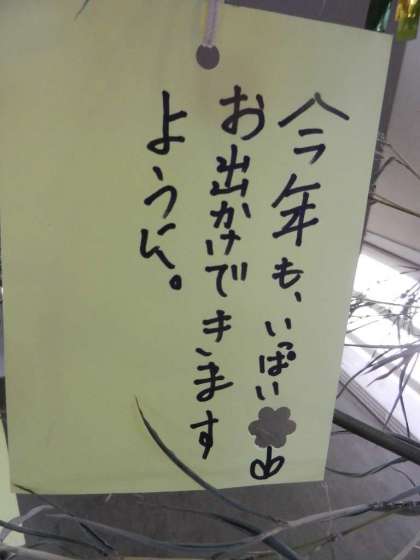 今年も、いっぱい
お出かけできます
ように。